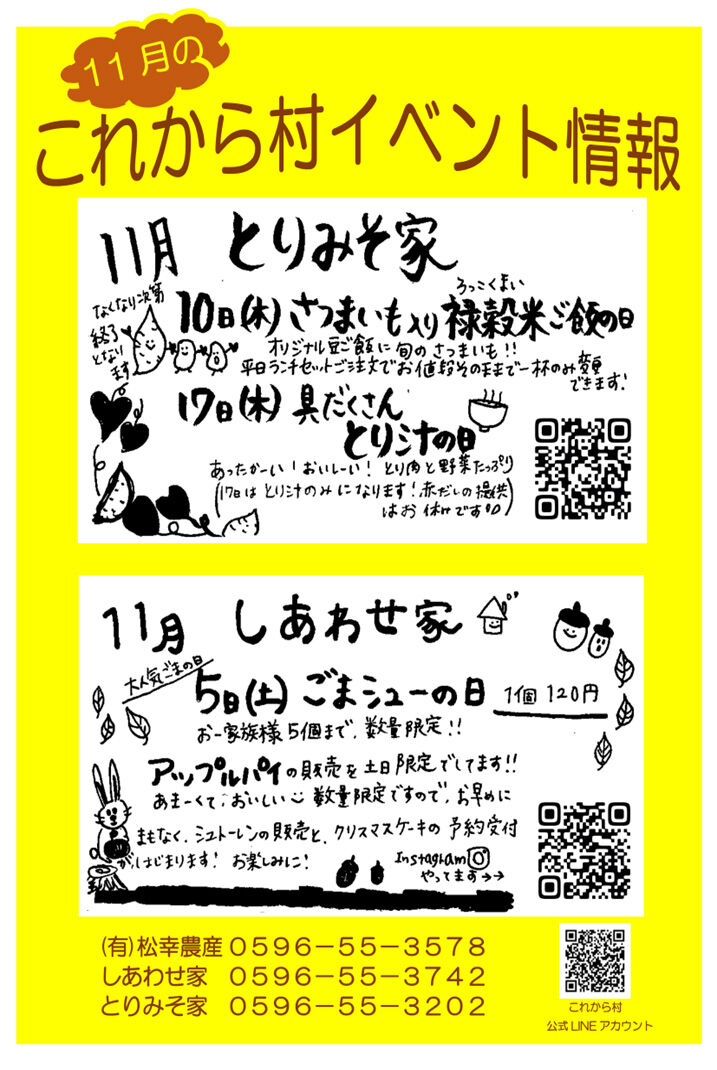 11月の
これから村イベント情報
11月 とりみそ家
なくなり次第
終了
となり
ます
ろっこくまい
10日(木) さつまいも入り 禄穀米ご飯の日
オリジナル豆ご飯に旬のさつまいも!!
平日ランチセットご注文でお値段そのままで一杯のみ変更
できます!
17日(木) 具だくさん
とり汁の日
あったかーい!おいしーい! とり肉と野菜たっぷり
(17日は とり汁のみになります!赤だしの提供
はお休みです)
11月 しあわせ家
大人気ごまの日
5日(土) ごまシューの日 1個 120円
お一家族様5個まで、数量限定!!
アップルパイの販売を土日限定でしてます!!
あまーくて、おいしい 数量限定ですので、お早めに
まもなく、シュトーレンの販売と、クリスマスケーキの予約受付
がはじまります! お楽しみに!
Instagram
やってます→→
(有)松幸農産 0596-55-3578
しあわせ家 0596-55-3742
とりみそ家 0596-55-3202
これから村
公式LINEアカウント